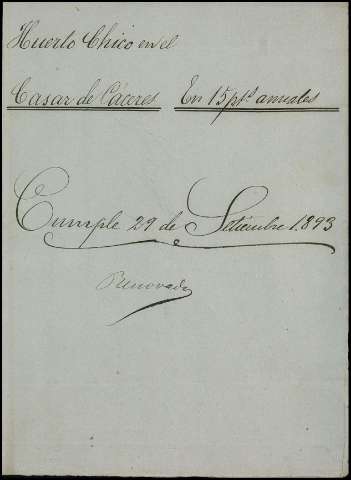 Huerto Chico en el
Casar de Cáceres En 15 pts anuales
Cumple 29 de Setiembre 1.893
Renovado